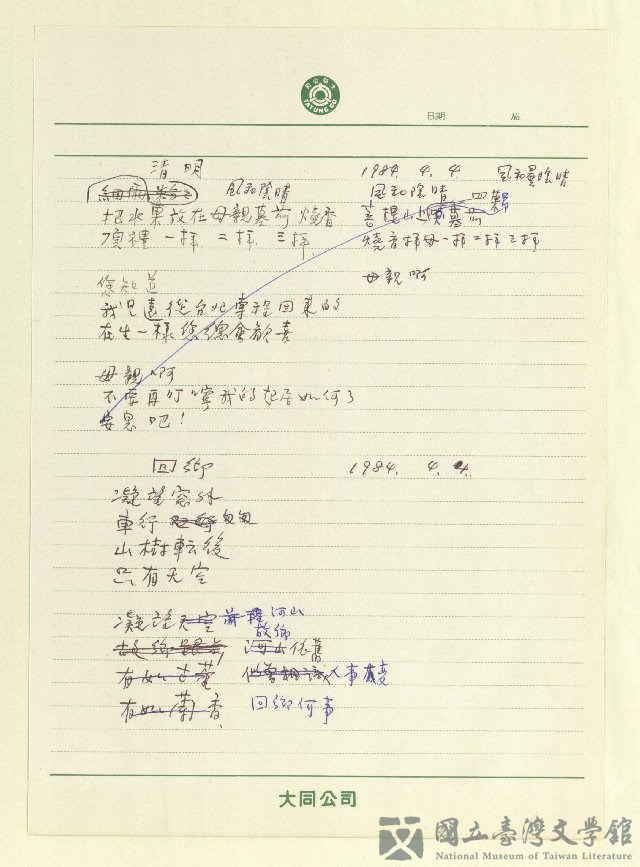 TATUNG CO.
日期 No.
清明 1984. 4. 4 風和曇陰晴
風和陰晴
風和陰晴 四鄰
把水果放在母親墓前燒香
頂禮 一拜 二拜 三拜
燒香拜母一拜二拜三拜
母親啊
您知道
我児遠從台北專程回來的
在生一樣您總會歡喜
母親啊
不要再叮嚀我的起居如何了
安息吧！
回鄉 1984. 4. 4.
凝望窗外
車行 匆匆
山樹転後
只有天空
凝望天空 前程河山
故鄉
河山依舊
有如古董 似曾相識 人事
有如蘭香 回鄉何事
大同公司
國立臺灣文學館
National Museum of Taiwan Literature